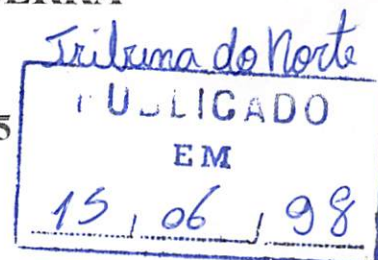 Tribuna do Norte
PUBLICADO
EM
15 / 06 / 98